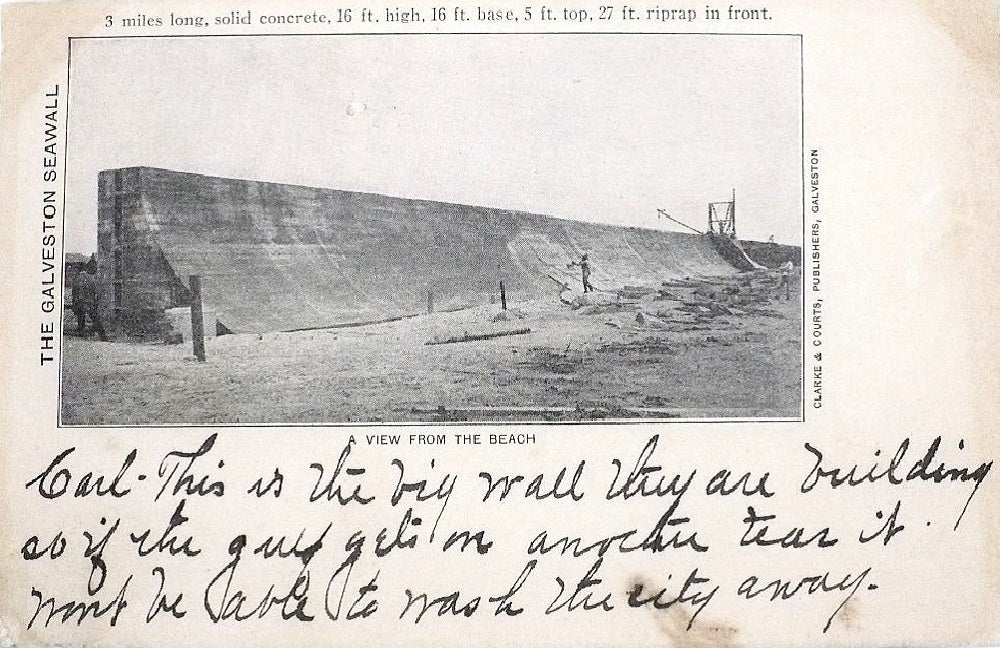 3 miles long, solid concrete, 16 ft. high, 16 ft. base, 5 ft. top, 27 ft. riprap in front.
THE GALVESTON SEAWALL
CLARKE & COURTS, PUBLISHERS, GALVESTON
A VIEW FROM THE BEACH
Carl - This is the big wall they are building
so if the gulf gets on another tear it
wont be able to wash the city away.